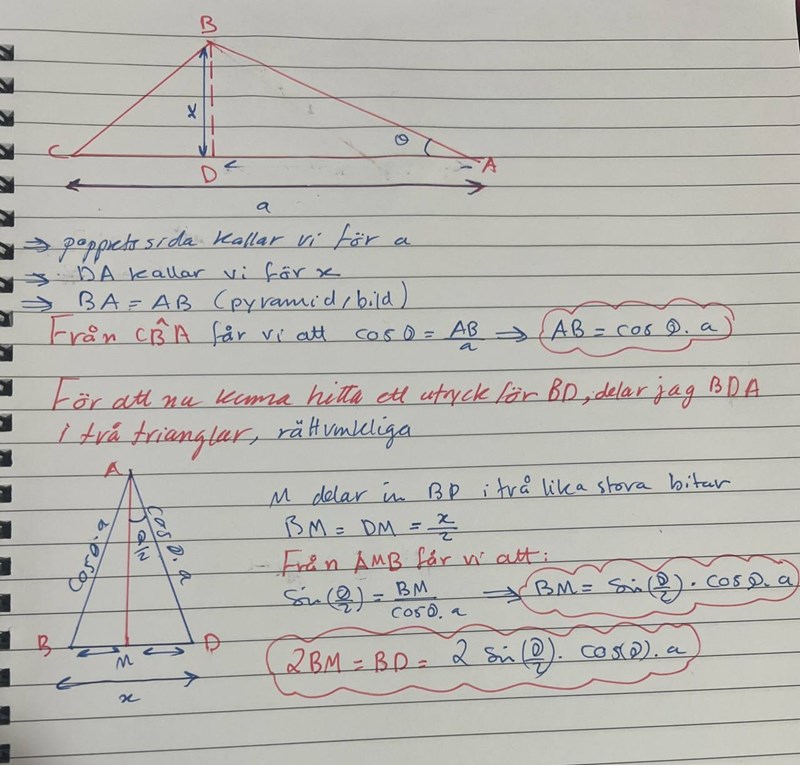 B
x
θ
C
D
A
a
⇒ pappretssida kallar vi för a
⇒ DA kallar vi för x
⇒ BA = AB (pyramid/bild)
Från CB̂A får vi att cos θ = AB/a ⇒ AB = cos θ. a
För att nu kunna hitta ett utryck för BD, delar jag BDA
i två trianglar, rättvinkliga
A
cosθ.a
θ/2
cosθ.a
B
M
D
x
M delar in BD i två lika stora bitar
BM = DM = x/2
Från AMB får vi att:
Sin(θ/2) = BM/cosθ.a ⇒ BM = Sin(θ/2) . cosθ.a
2BM = BD = 2 sin(θ/2). cos(θ).a